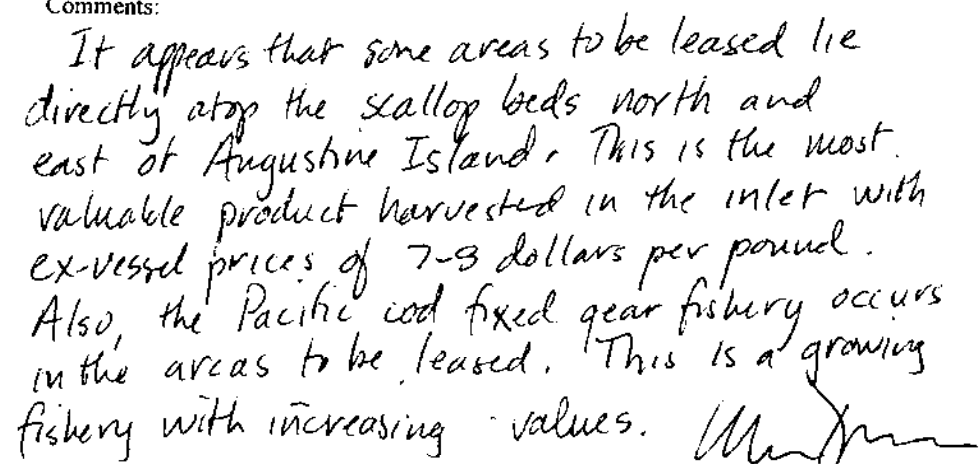 Comments:
It appears that some areas to be leased lie
directly atop the scallop beds north and
east of Augustine Island. This is the most
valuable product harvested in the inlet with
ex-vessel prices of 7-8 dollars per pound.
Also, the Pacific cod fixed gear fishery occurs
in the areas to be leased. This is a growing
fishery with increasing values.